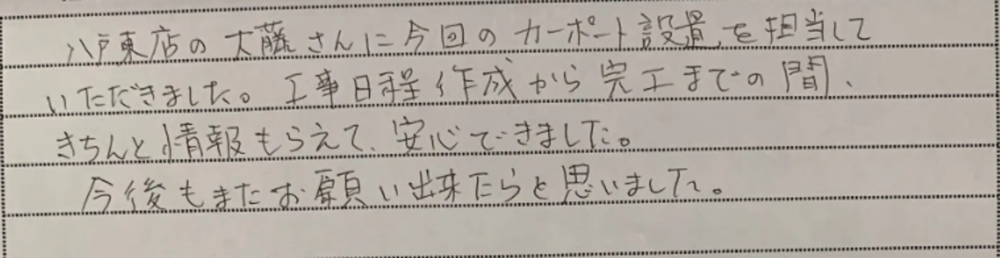 八戸東店の大藤さんに今回のカーポート設置を担当して
いただきました。工事日程作成から完工までの間、
きちんと情報もらえて、安心できました。
今後もまたお願い出来たらと思いました。